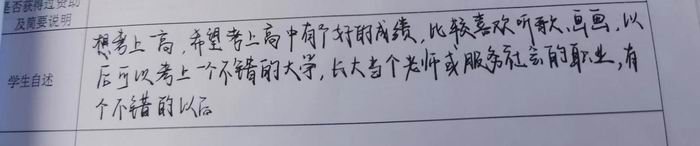 是否获得过资助
及简要说明
学生自述
想考上一高,希望考上高中有个好的成绩,比较喜欢听歌、画画,以
后可以考上一个不错的大学,长大当个老师或服务社会的职业,有
个不错的以后